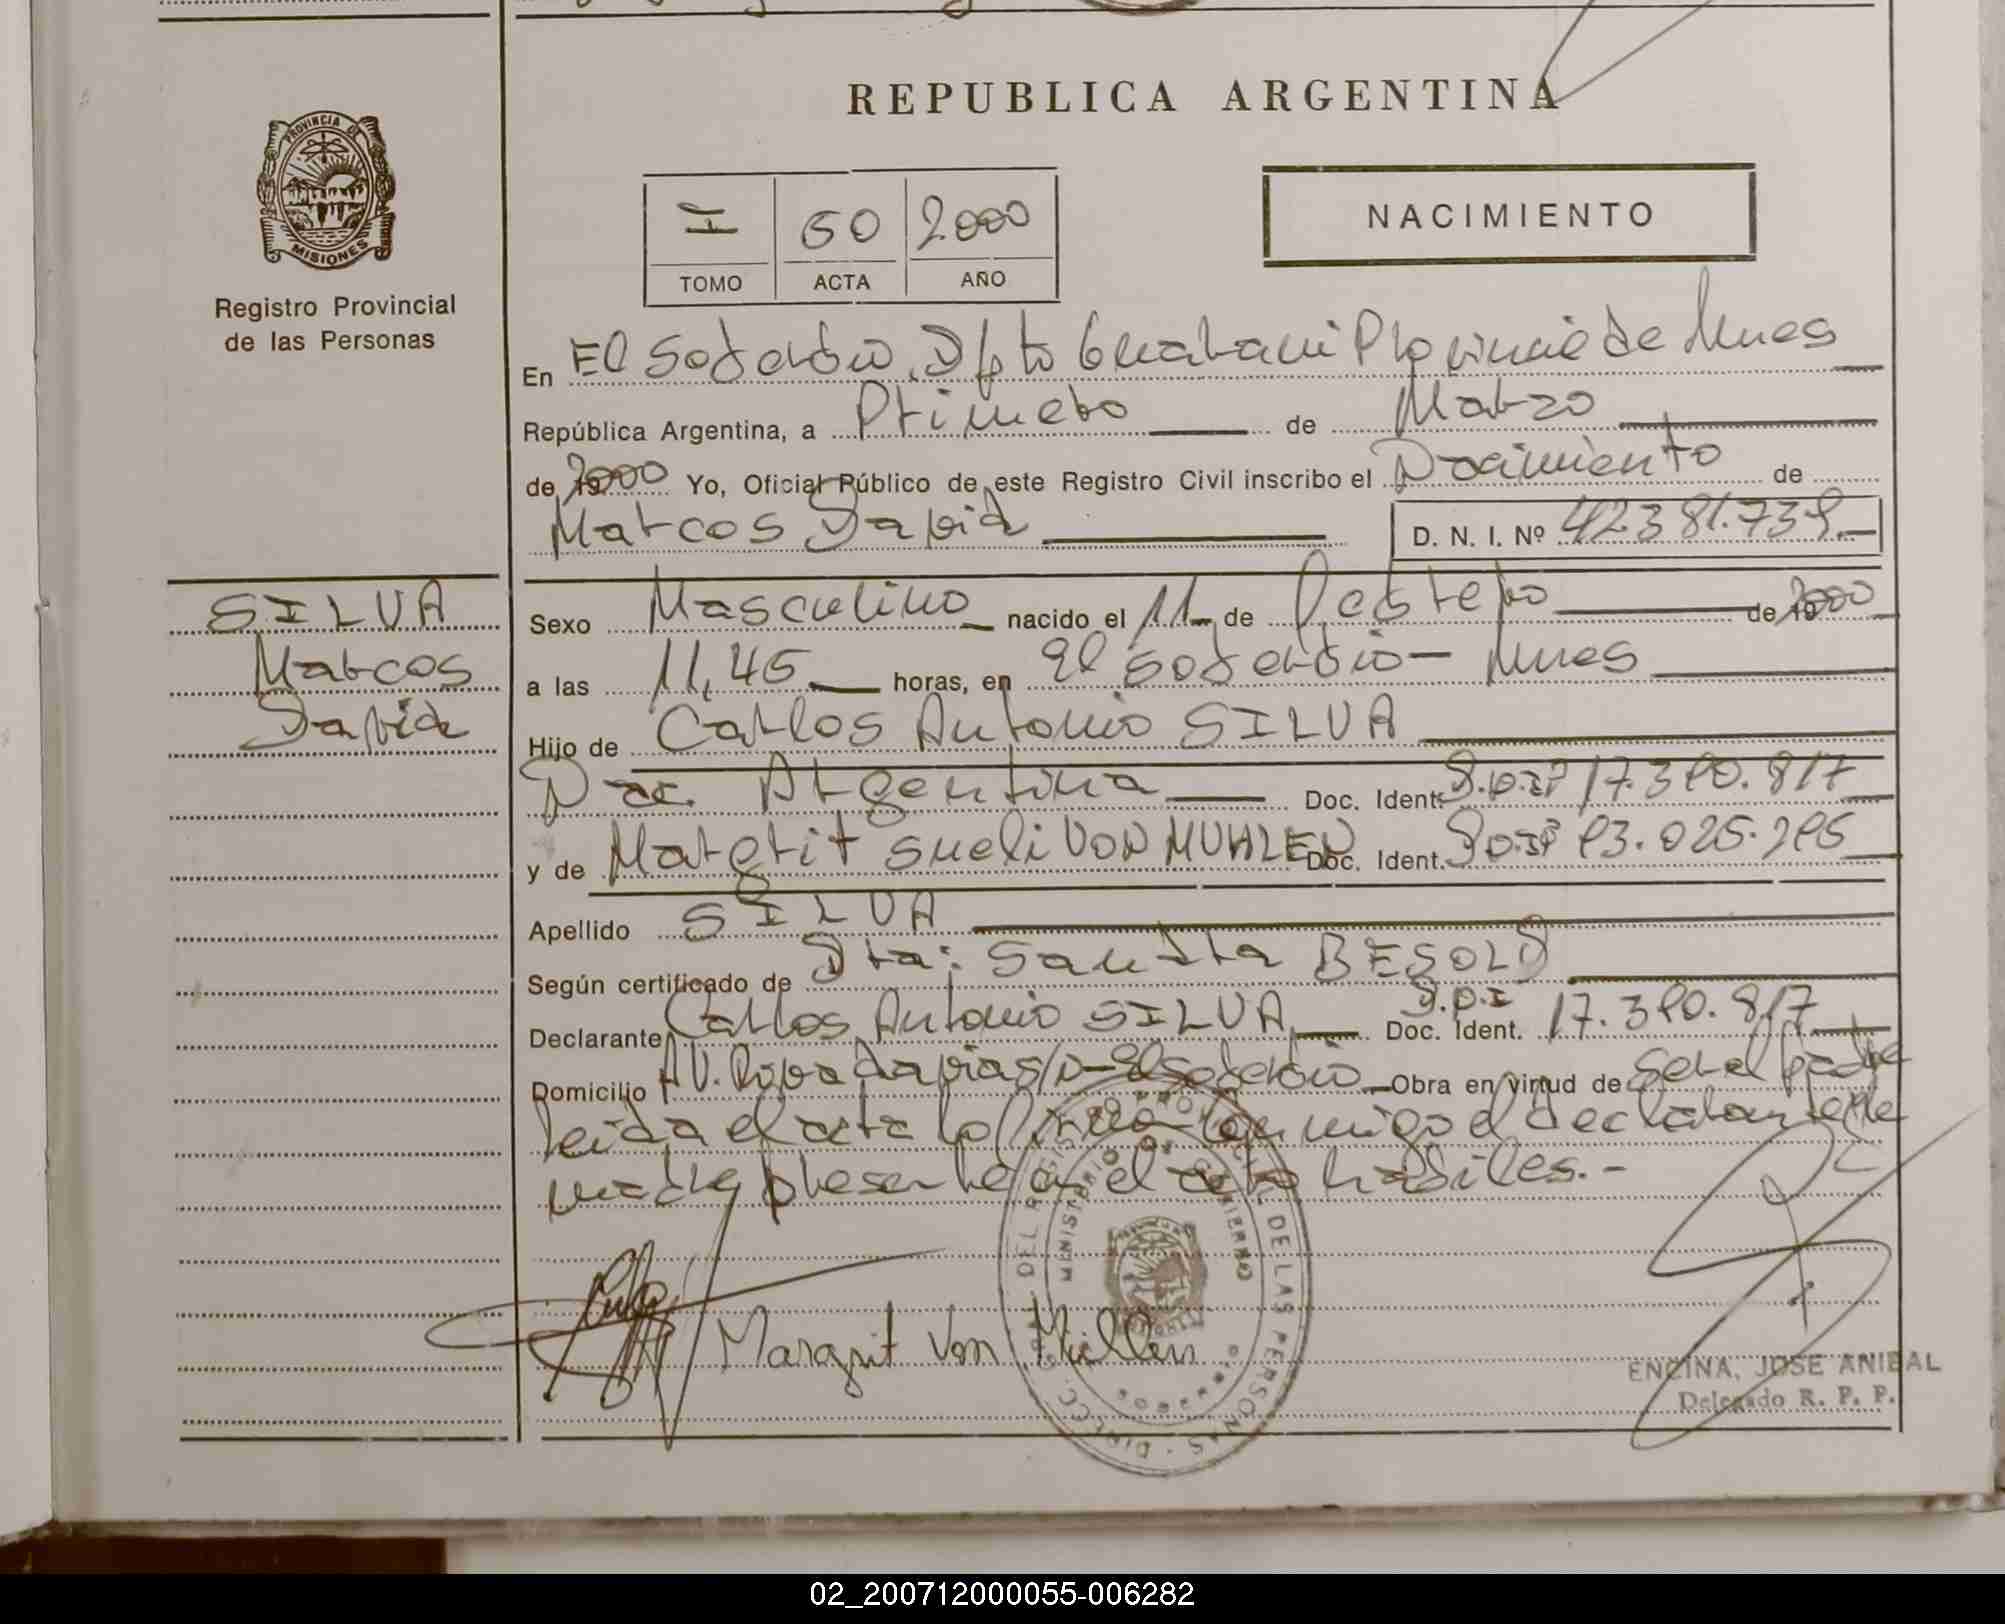 REPUBLICA ARGENTINA
PROVINCIA DE
MISIONES
Registro Provincial
de las Personas
I 60 2000
TOMO ACTA AÑO
NACIMIENTO
En El Soberbio, Dpto Guarani Provincia de Mnes
República Argentina, a Primero de Marzo
de 2000 Yo, Oficial Público de este Registro Civil inscribo el Nacimiento de
Marcos David D. N. I. Nº 42.381.739.-
SILVA
Marcos
David
Sexo Masculino nacido el 11 de Febrero de 2000
a las 11,45 horas, en El Soberbio - Mnes
Hijo de Carlos Antonio SILVA
Nac. Argentina Doc. Ident. 17.390.817
y de Margrit Sueli VON MUHLEN Doc. Ident. 93.025.295
Apellido SILVA
Según certificado de Dra: Sandra BESOLD
Declarante Carlos Antonio SILVA Doc. Ident. D.N.I 17.390.817
Domicilio AV. Rivadavia s/n - El Soberbio Obra en virtud de ser el padre
leida el acta la firma conmigo el declarante y la
madre presente en el acto habiles.-
Margrit Von Mühlen
MINISTERIO DE GOBIERNO
DIRECC. GRAL. DEL REGISTRO PROVINCIAL DE LAS PERSONAS
ENCINA, JOSE ANIBAL
Delegado R. P. P.
02_200712000055-006282